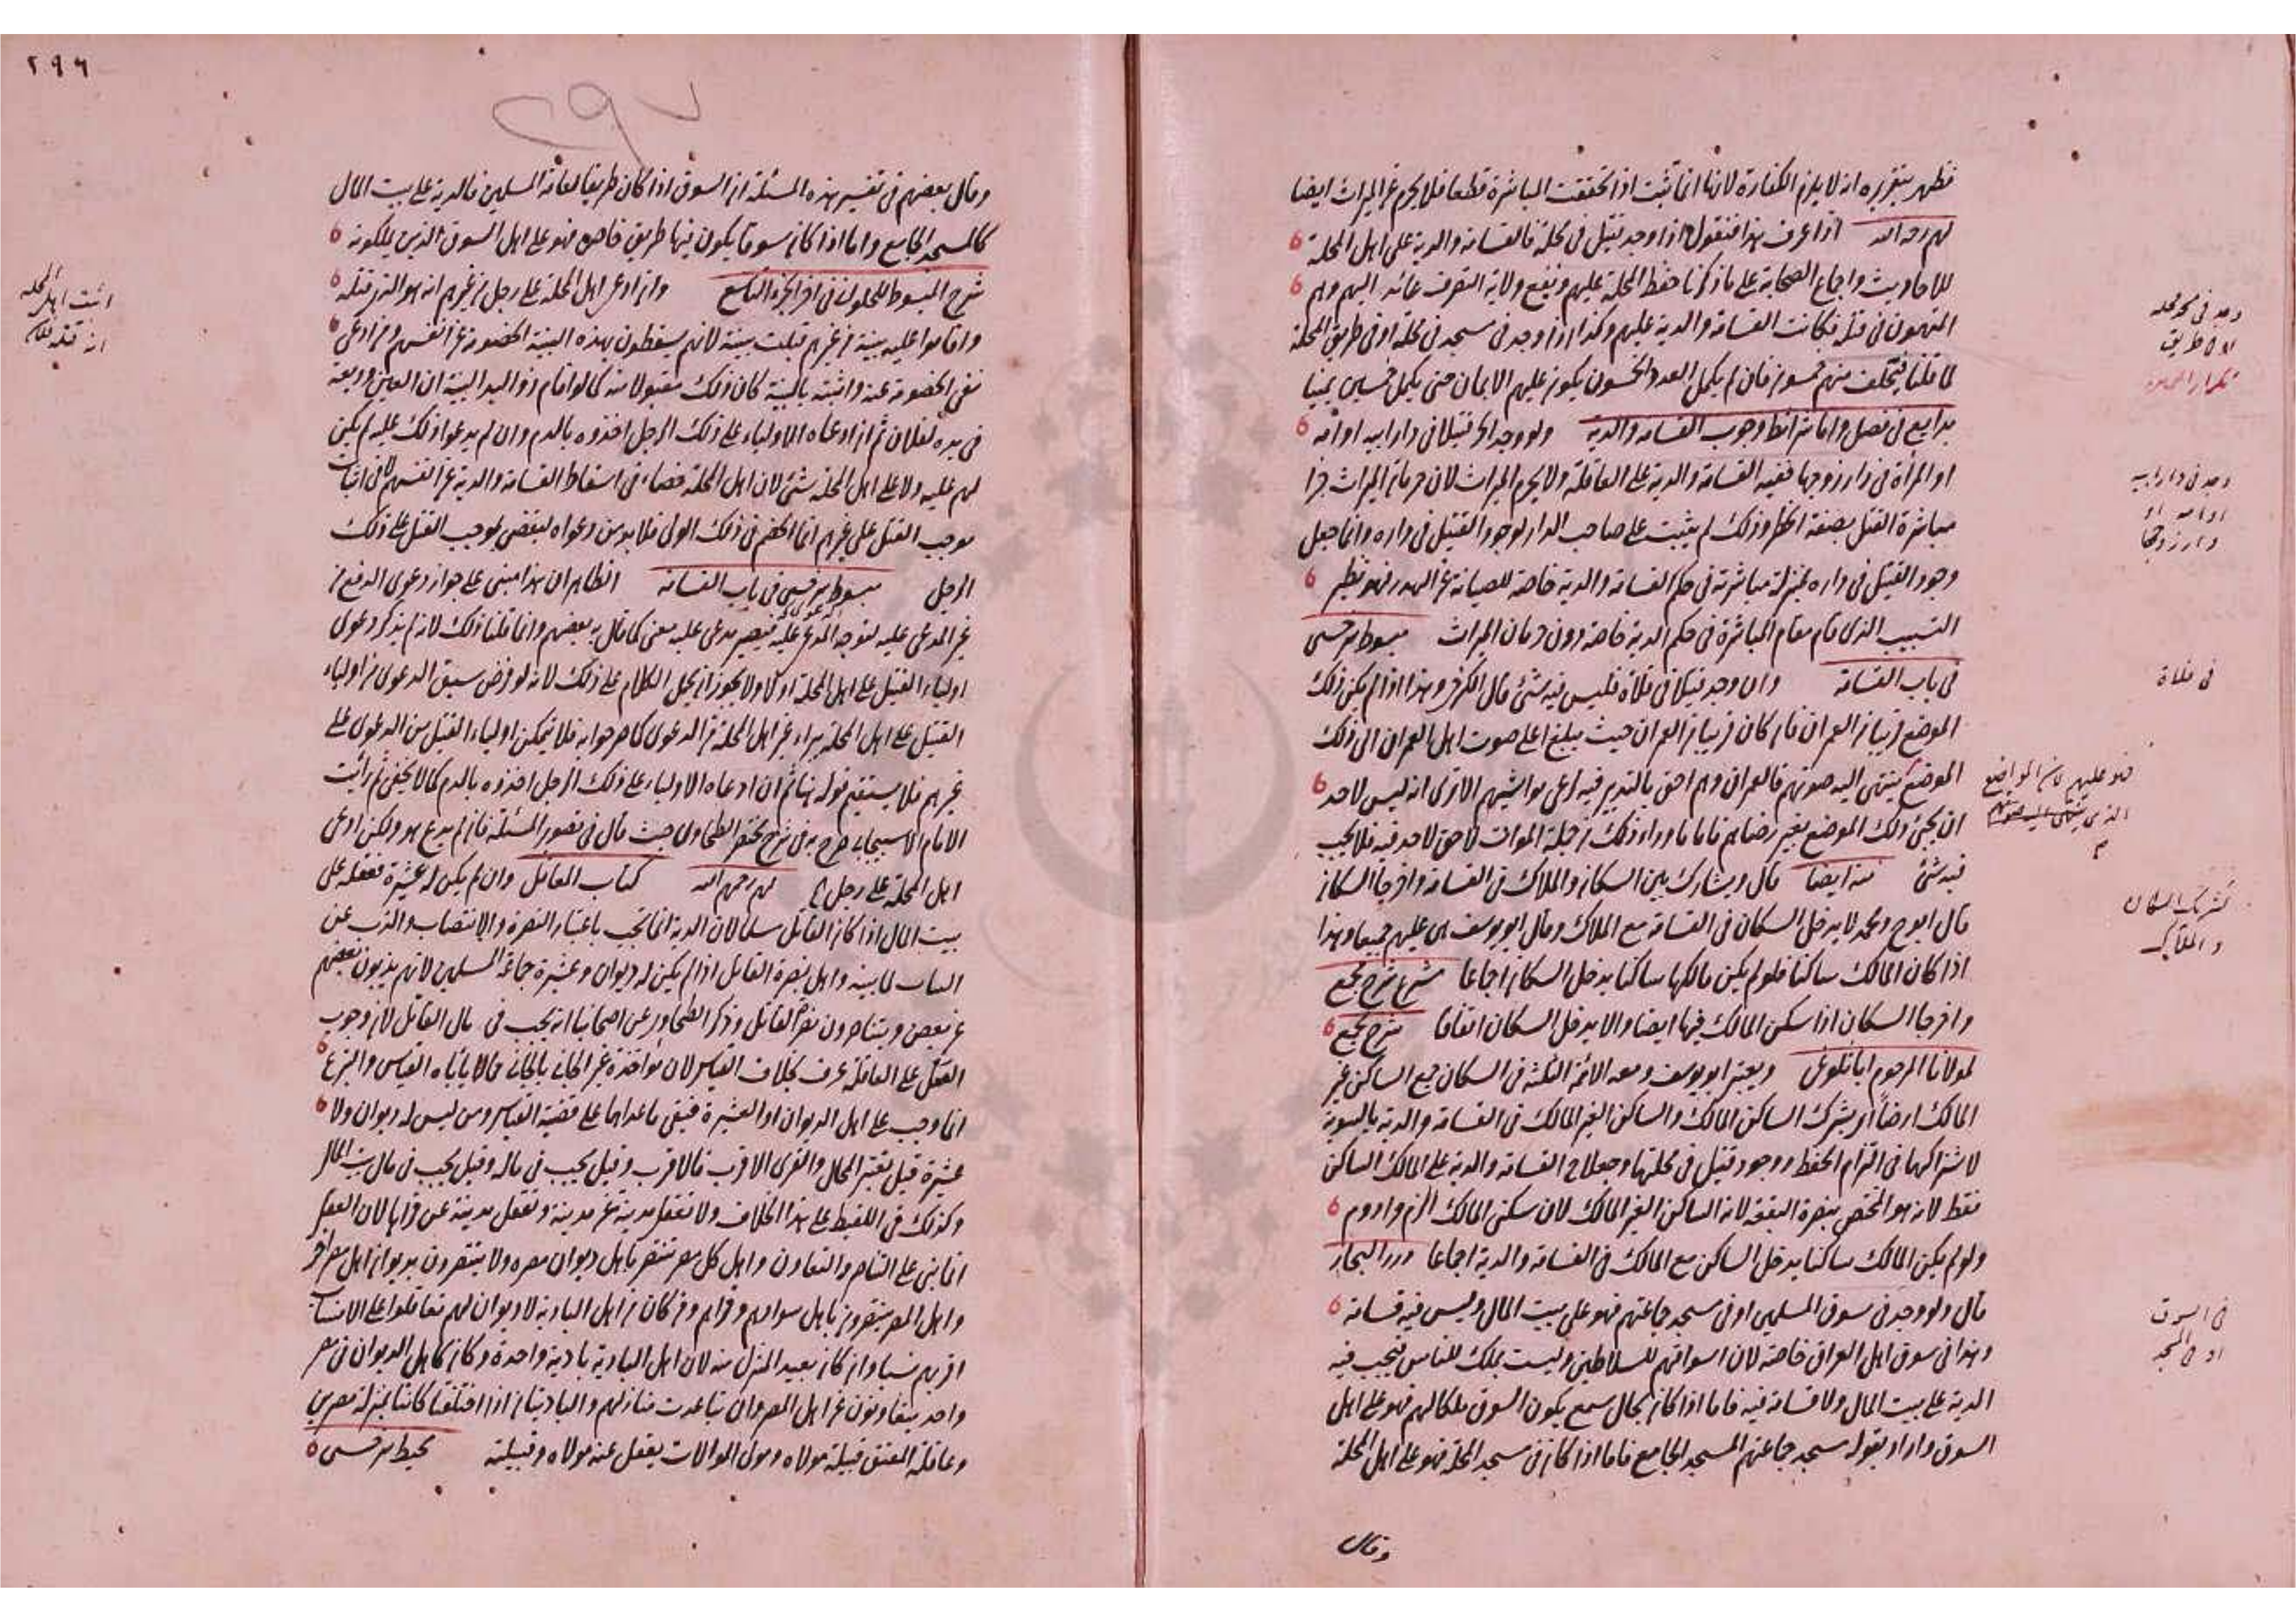 فظهر بتقريره انه لا يلزم الكفارة لانها انما تثبت اذا تحققت المباشرة قطعا فلا يحرم عن الميراث ايضا
لهم رحمه الله اذا عرف هذا فنقول اذا وجد قتيل في محلة فالقسامة والدية على اهل المحلة
للاحاديث واجماع الصحابة على ما ذكرنا حفظ المحلة عليهم ونفع ولاية التصرف عائد اليهم وهم
المتهمون في قتله فكانت القسامة والدية عليهم وكذا اذا وجد في مسجد في محلة او في طريق المحلة
لما قلنا فيحلف منهم خمسون فان لم يكمل العدد الخمسون يكرر عليهم الايمان حتى يكمل خمسين يمينا
بدايع في فصل واما شرائط وجوب القسامة والدية ولو وجد الحر قتيلا في دار ابيه او امه
او المرأة في دار زوجها ففيه القسامة والدية على العاقلة ولا يحرم الميراث لان حرمان الميراث جزا
مباشرة القتل بصفة الحظر وذلك لم يثبت على صاحب الدار لوجود القتيل في داره وانما جعل
وجود القتيل في داره بمنزلة مباشرته في حكم القسامة والدية خاصة للصيانة عن الهدر فهو نظير
التسبيب الذي قام مقام المباشرة في حكم الدية خاصة دون حرمان الميراث مبسوط سرخسي
في باب القسامة وان وجد قتيلا في فلاة فليس فيه شئ قال الكرخي وهذا اذا لم يكن ذلك
الموضع قريبا من العمران فان كان قريبا من العمران حيث يبلغ اعلى صوت اهل العمران الى ذلك
الموضع ينتهي اليه صوتهم فالعمران وهم احق بالتدبير فيه لرعي مواشيهم الا ترى انه ليس لاحد
ان يحيي ذلك الموضع بغير رضاهم فاما ما وراء ذلك من جملة الموات لا حق لاحد فيه فلا يجب
فيه شئ منه ايضا قال ويشارك بين السكان والملاك في القسامة واخرجا السكان
قال ابو ح ومحمد لا يدخل السكان في القسامة مع الملاك وقال ابو يوسف هي عليهم جميعا وهذا
اذا كان المالك ساكنا فلو لم يكن مالكها ساكنا يدخل السكان اجماعا شرح مجمع
واخرجا السكان اذا سكن المالك فيها ايضا والا يدخل السكان اتفاقا شرح مجمع
لمولانا المرحوم ويعتبر ابو يوسف ومعه الائمة الثلثة في السكان جمع الساكن غير
المالك ارضا اي يشرك الساكن المالك والساكن الغير المالك في القسامة والدية بالسوية
لاشتراكهما في التزام الحفظ ووجود قتيل في محلتها وجعلا القسامة والدية على المالك الساكن
فقط لانه هو المختص بنصرة البقعة لانه الساكن الغير المالك لان سكنى المالك الزم وادوم
ولو لم يكن المالك ساكنا يدخل الساكن مع المالك في القسامة والدية اجماعا درر البحار
قال ولو وجد في سوق المسلمين او في مسجد جماعتهم فهو على بيت المال وليس فيه قسامة
وهذا في سوق اهل العراق خاصة لان اسواقهم للسلاطين وليست بملك للناس فيجب فيه
الدية على بيت المال ولا قسامة فيه فاما اذا كان بحال يكون السوق ملكا لهم فهو على اهل
السوق واراد بقوله مسجد جماعتهم المسجد الجامع فاما اذا كان في مسجد المحلة فهو على اهل المحلة
وقال
وجد في دار ابيه
او امه او
دار زوجها
في فلاة
فهو عليهم لان المواضع
الذي ينتهي اليه صوتهم
تشريك السكان
والملاك
في السوق
او في المسجد
٢٩٦
٢٩٧
وقال بعضهم في تفسير هذه المسئلة ان السوق اذا كان طريقا لعامة المسلمين فالدية على بيت المال
كالمسجد الجامع واما اذا كان سوقا يكون فيها طريق خاص فهو على اهل السوق الذين يملكونه
شرح المبسوط للحلواني في اخر الجزء التاسع وان ادعى اهل المحلة على رجل من غيرهم انه هو الذي قتله
واقاموا عليه بينة من غيرهم قبلت بينة لانهم يسقطون بهذه البينة الخصومة عن انفسهم ومن ادعى
نفي الخصومة عنه واثبته بالبينة كان ذلك مقبولا منه كما لو اقام ذو اليد البينة ان العين وديعة
في يده لفلان ثم ان ادعاه الاولياء على ذلك الرجل اخذوه بالدم وان لم يدعوا ذلك عليه لم يكن
لهم عليه ولا على اهل المحلة شئ لان اهل المحلة خصماء في اسقاط القسامة والدية عن انفسهم لا في اثبات
موجب القتل على غيرهم انما الخصم في ذلك الولي فلا بد من دعواه ليقضى بموجب القتل على ذلك
الرجل مبسوط سرخسي في باب القسامة الظاهر ان هذا مبني على جواز دعوى الدفع من
غير المدعى عليه لتوجه الدعوى عليه فيصير مدعى عليه معنى كما قال به بعضهم وانما قلنا ذلك لانه لم يذكر دعوى
اولياء القتيل على اهل المحلة اولا ولا يجوز ان يحمل الكلام على ذلك لانه لو فرض سبق الدعوى من اولياء
القتيل على اهل المحلة يبراء غير اهل المحلة من الدعوى كما صرحوا به فلا يتمكن اولياء القتيل من الدعوى على
غيرهم فلا يستقيم قوله هنا ثم ان ادعاه الاولياء على ذلك الرجل اخذوه بالدم كما لا يخفى ثم رأيت
الامام الاسبيجابي صرح به في شرح مختصر الطحاوي حيث قال في تصوير المسئلة فان لم يدع هو ولكن ادعى
اهل المحلة على رجل لهم رحمهم الله كتاب المعاقل وان لم يكن له عشيرة فعقله على
بيت المال اذا كان القاتل مسلما لان الدية انما تجب باعتبار النصرة والانتصاب والذب عن
واهل نصرة القاتل اذا لم يكن له ديوان وعشيرة جماعة المسلمين لانهم يذبون بعضهم
عن بعض ويتناصرون القاتل وذكر الطحاوي عن اصحابنا انه يجب في مال القاتل لان وجوب
العقل على العاقلة عرف بخلاف القياس لان مؤاخذة غير الجاني بالجاني مما لا يأباه القياس والشرع
انما وجب على اهل الديوان او العشيرة فبقي ما عداهما على قضية القياس ومن ليس له ديوان ولا
عشيرة قيل يعتبر المحال والقرى الاقرب فالاقرب وقيل يجب في ماله وقيل يجب في مال بيت المال
وكذلك في اللقيط على هذا الخلاف ولا تعقل مدينة عن مدينة وتعقل مدينة عن قراها لان العقل
انما بني على التناصر والتعاون واهل كل مصر تنتصر باهل ديوان مصره ولا ينتصرون بديوان اهل مصر اخر
واهل المصر ينتصرون باهل سوادهم وقراهم ومن كان من اهل البادية لا ديوان لهم تعاقلوا على الانساب
اقربهم نسبا وان كان بعيد المنزل منه لان اهل البادية بادية واحدة وكان كاهل الديوان في مصر
واحد يتعاونون عن اهل المصر وان تباعدت منازلهم والباديتان اذا اختلفتا كانتا بمنزلة مصرين
وعاقلة المعتق قبيلة مولاه ومولى الموالات يعقل عنه مولاه وقبيلته محيط سرخسي
اثبت اهل المحلة